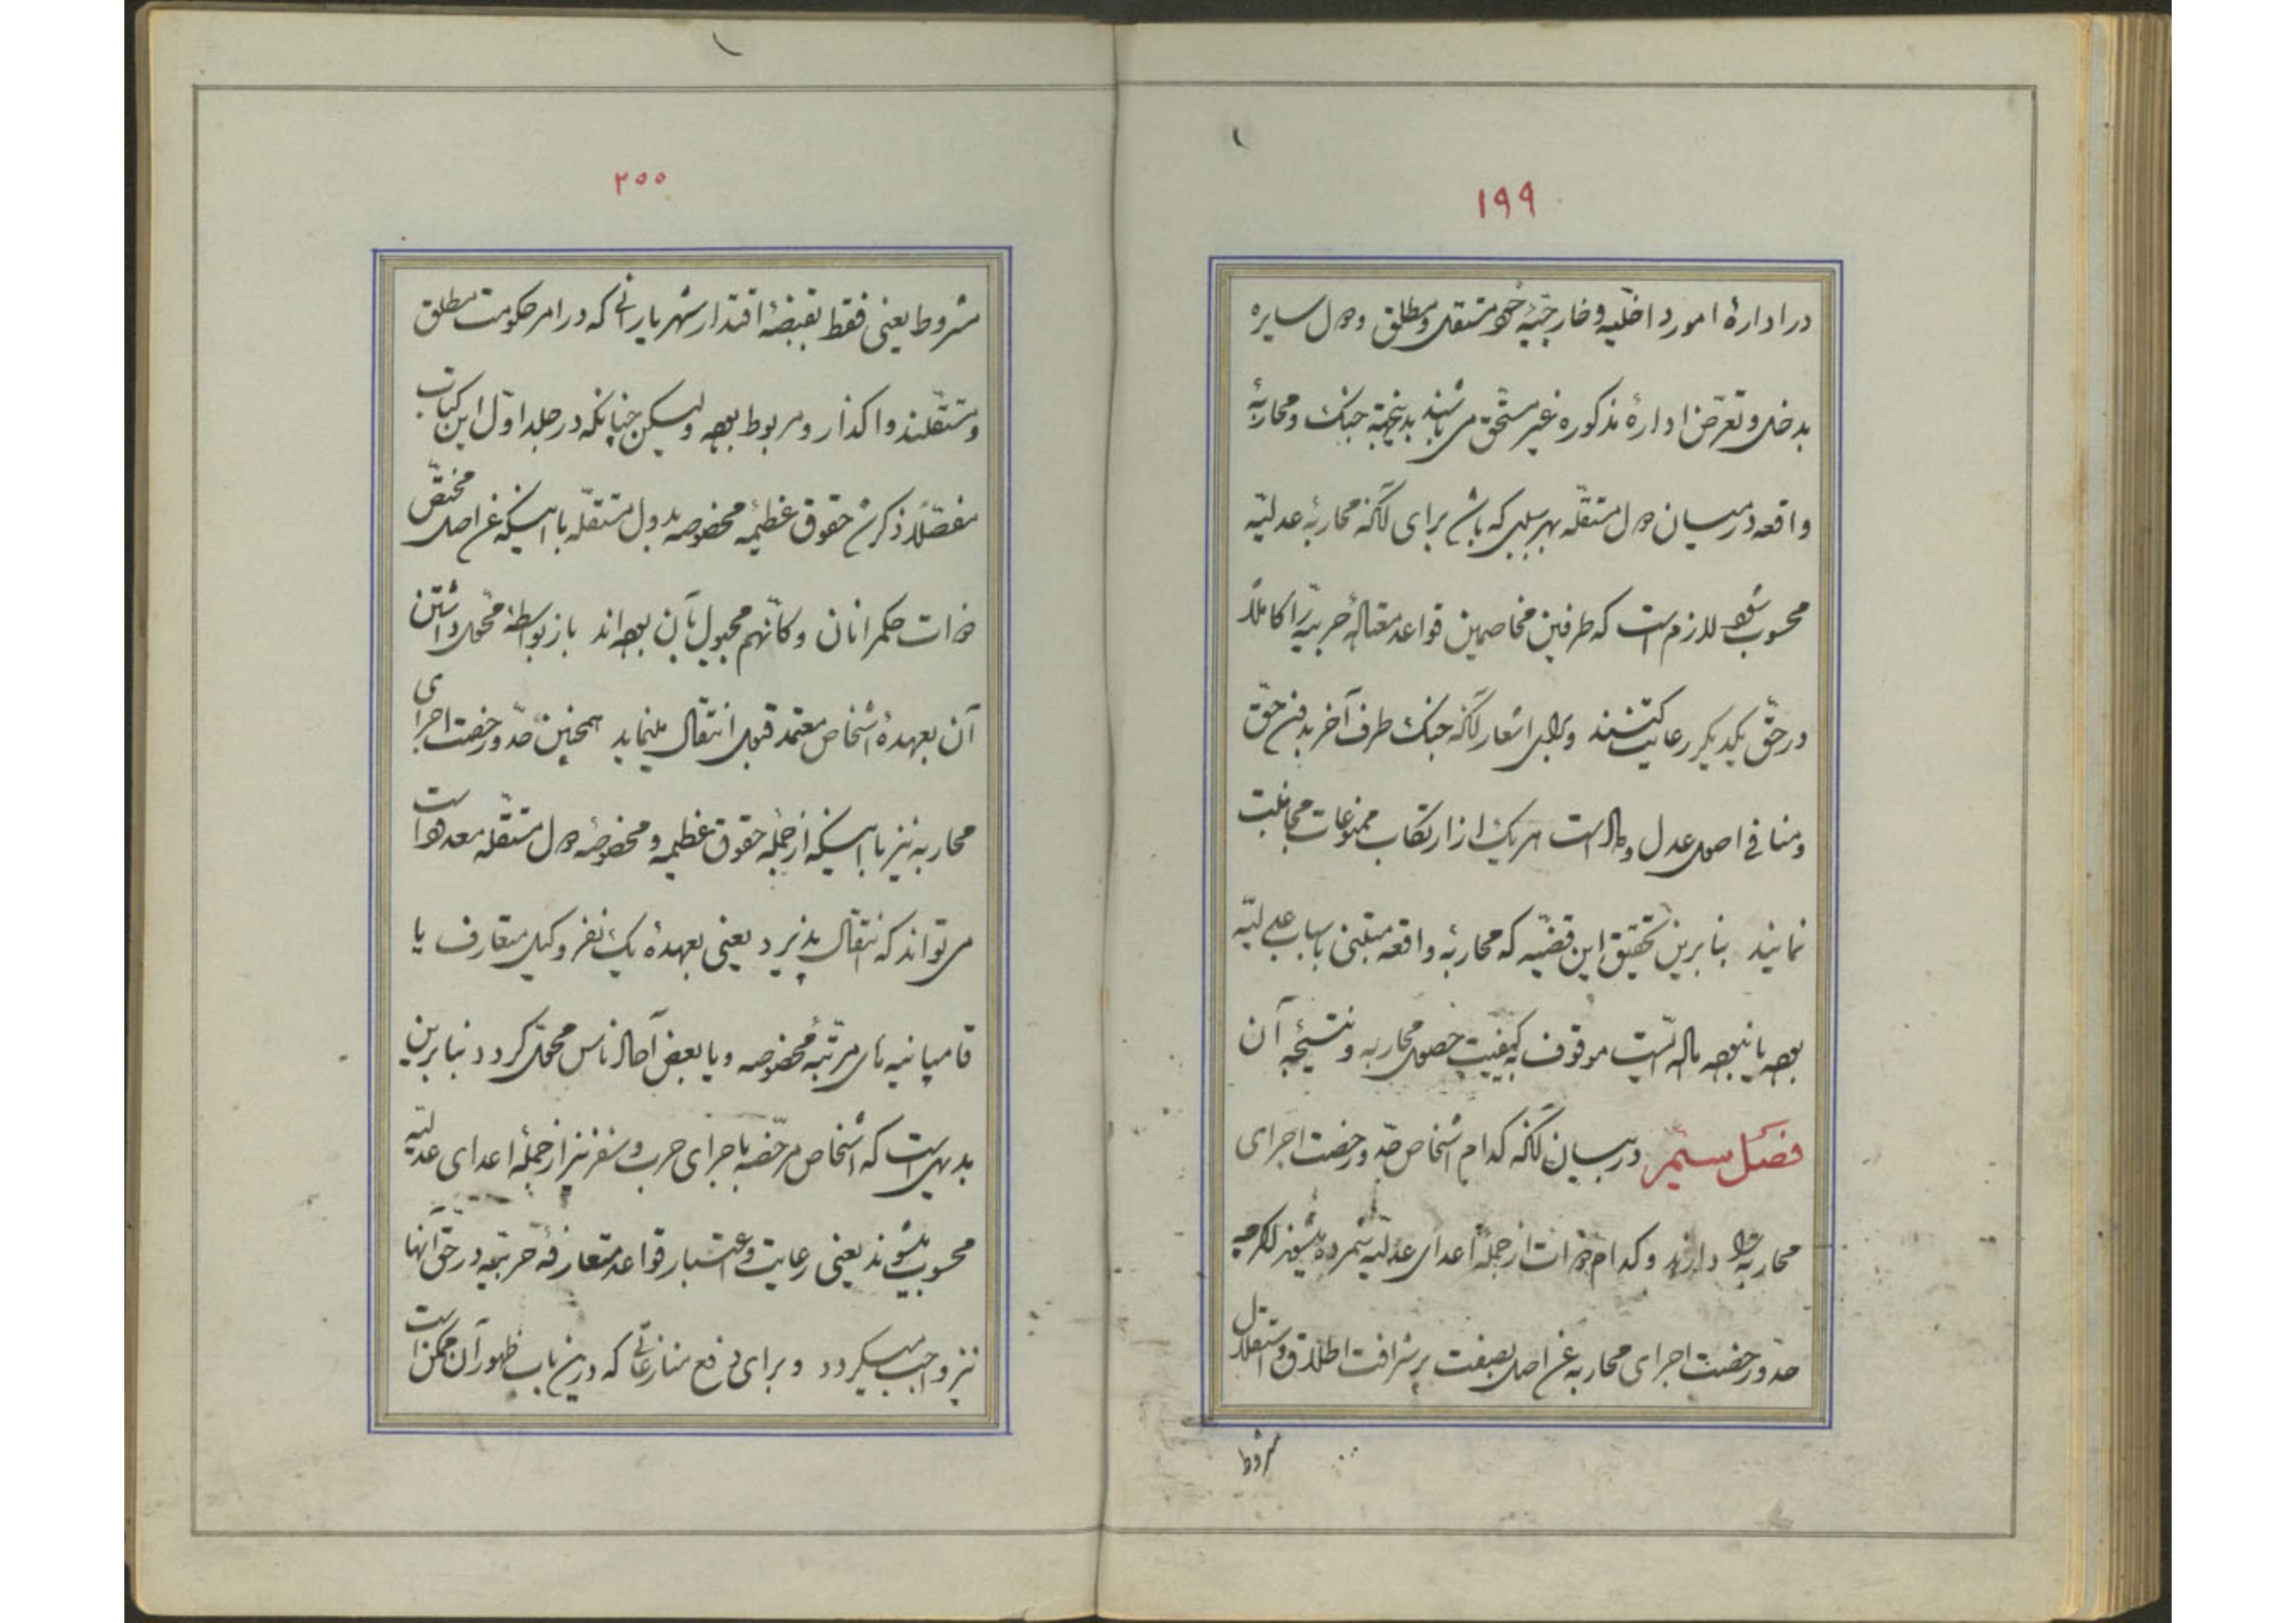 ۱۹۹
در ادارهٔ امور داخلیه و خارجیهٔ خود مستقل و مطلق و دول سایره
بدخل و تعرض ادارهٔ مذکوره غیر مستحق می باشند بدینجهة جنک و محاربهٔ
واقعه در میان دول مستقله بهر سببی که باشد برای آنکه محاربهٔ عدلیه
محسوب شود لازم است که طرفین مخاصمین قواعد حربیه را کاملاً
در حق یکدیکر رعایت کنند و برای اشعار آنکه جنک طرف آخر بدون حق
و منافی اصول عدل و داد است هر یک از ارتکاب ممنوعات مجانبت
نمایند بنابرین تحقیق این قضیه که محاربهٔ واقعه مبتنی باسباب عدلیه
بوده یا نبوده موقوف به کیفیت حصول محاربه و نتیجهٔ آن
فصل سیم در بیان آنکه کدام اشخاص حد و رخصت اجرای
محاربه را دارند و کدام ذوات از جملهٔ اعدای عدلیه شمرده میشوند اکرچه
حد و رخصت اجرای محاربه عن اصل بصفت پر شرافت اطلاق و استقلال
مشروط
۲۰۰
مشروط یعنی فقط بقبضهٔ اقتدار شهریارانی که در امر حکومت مطلق
و مستقلند واکذار و مربوط بوده ولیکن چنانکه در جلد اول این کتاب
مفصلاً ذکر شد حقوق عظیمهٔ مخصوصه بدول مستقله با اینکه عن اصل مختص
ذوات حکمرانان و کانهم مجبول بآن بوده اند باز بواسطهٔ محول داشتن
آن بعهدهٔ اشخاص معتمد قبول انتقال مینماید همچنین حد و رخصت اجرای
محاربه نیز با اینکه از جملهٔ حقوق عظیمه و مخصوصهٔ دول مستقله معدود است
می تواند که انتقال پذیرد یعنی بعهدهٔ یک نفر وکیل متعارف یا
قامپانیه های مرتبهٔ مخصوصه و یا بعض آحاد ناس محول کردد بنابرین
بدیهی است که اشخاص مرخصه باجرای حرب و سفر نیز از جملهٔ اعدای عدلیه
محسوب میشوند یعنی رعایت و اعتبار قواعد متعارفهٔ حربیه در حق آنها
نیز واجب میکردد و برای دفع منازعاتی که درین باب ظهور آن ممکن است